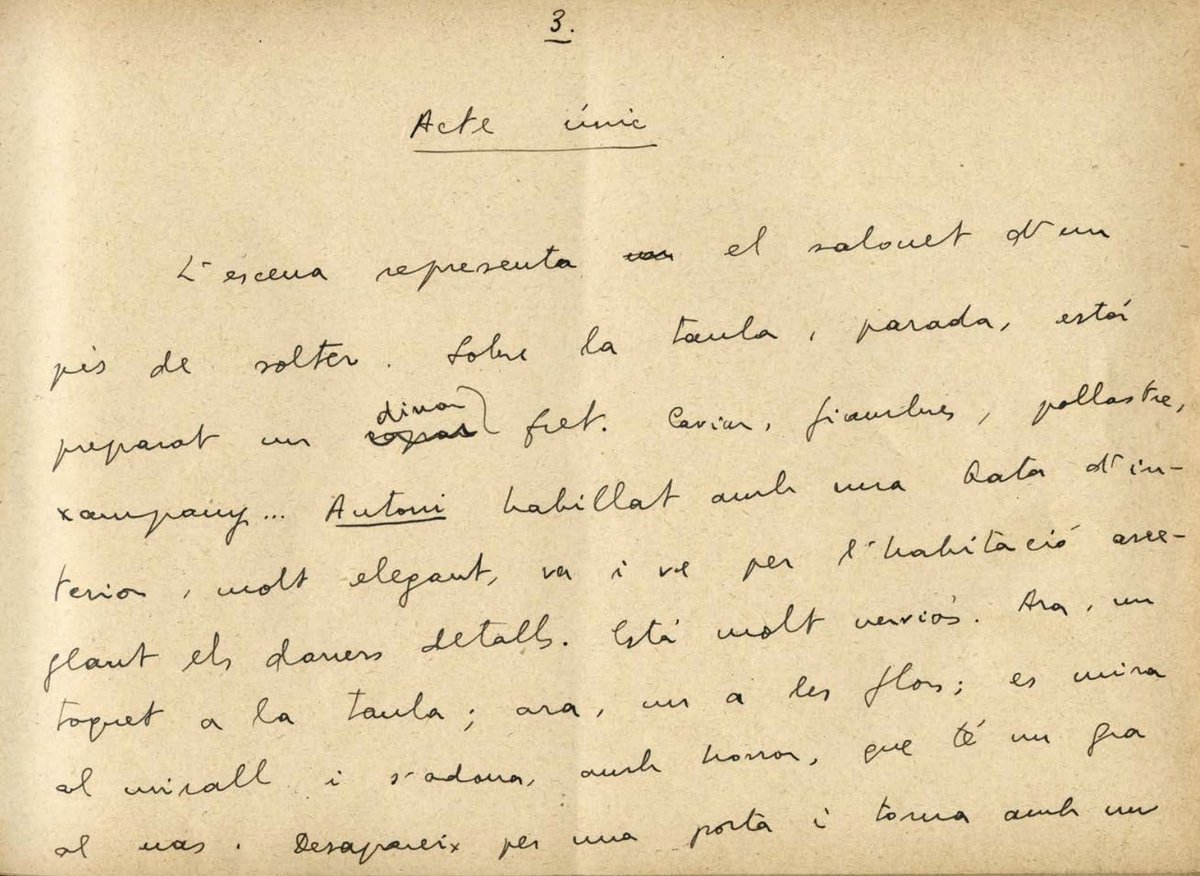 3.
Acte únic
L'escena representa un el salonet d'un
pis de solter. Sobre la taula, parada, està
preparat un sopar dinar fret. Caviar, fiambres, pollastre,
xampany... Antoni habillat amb una bata d'in-
terior, molt elegant, va i ve per l'habitació arre-
glant els darrers detalls. Està molt nerviós. Ara, un
toquet a la taula; ara, un a les flors; es mira
al mirall i s'adona, amb horror, que té un gra
al nas. Desapareix per una porta i torna amb un